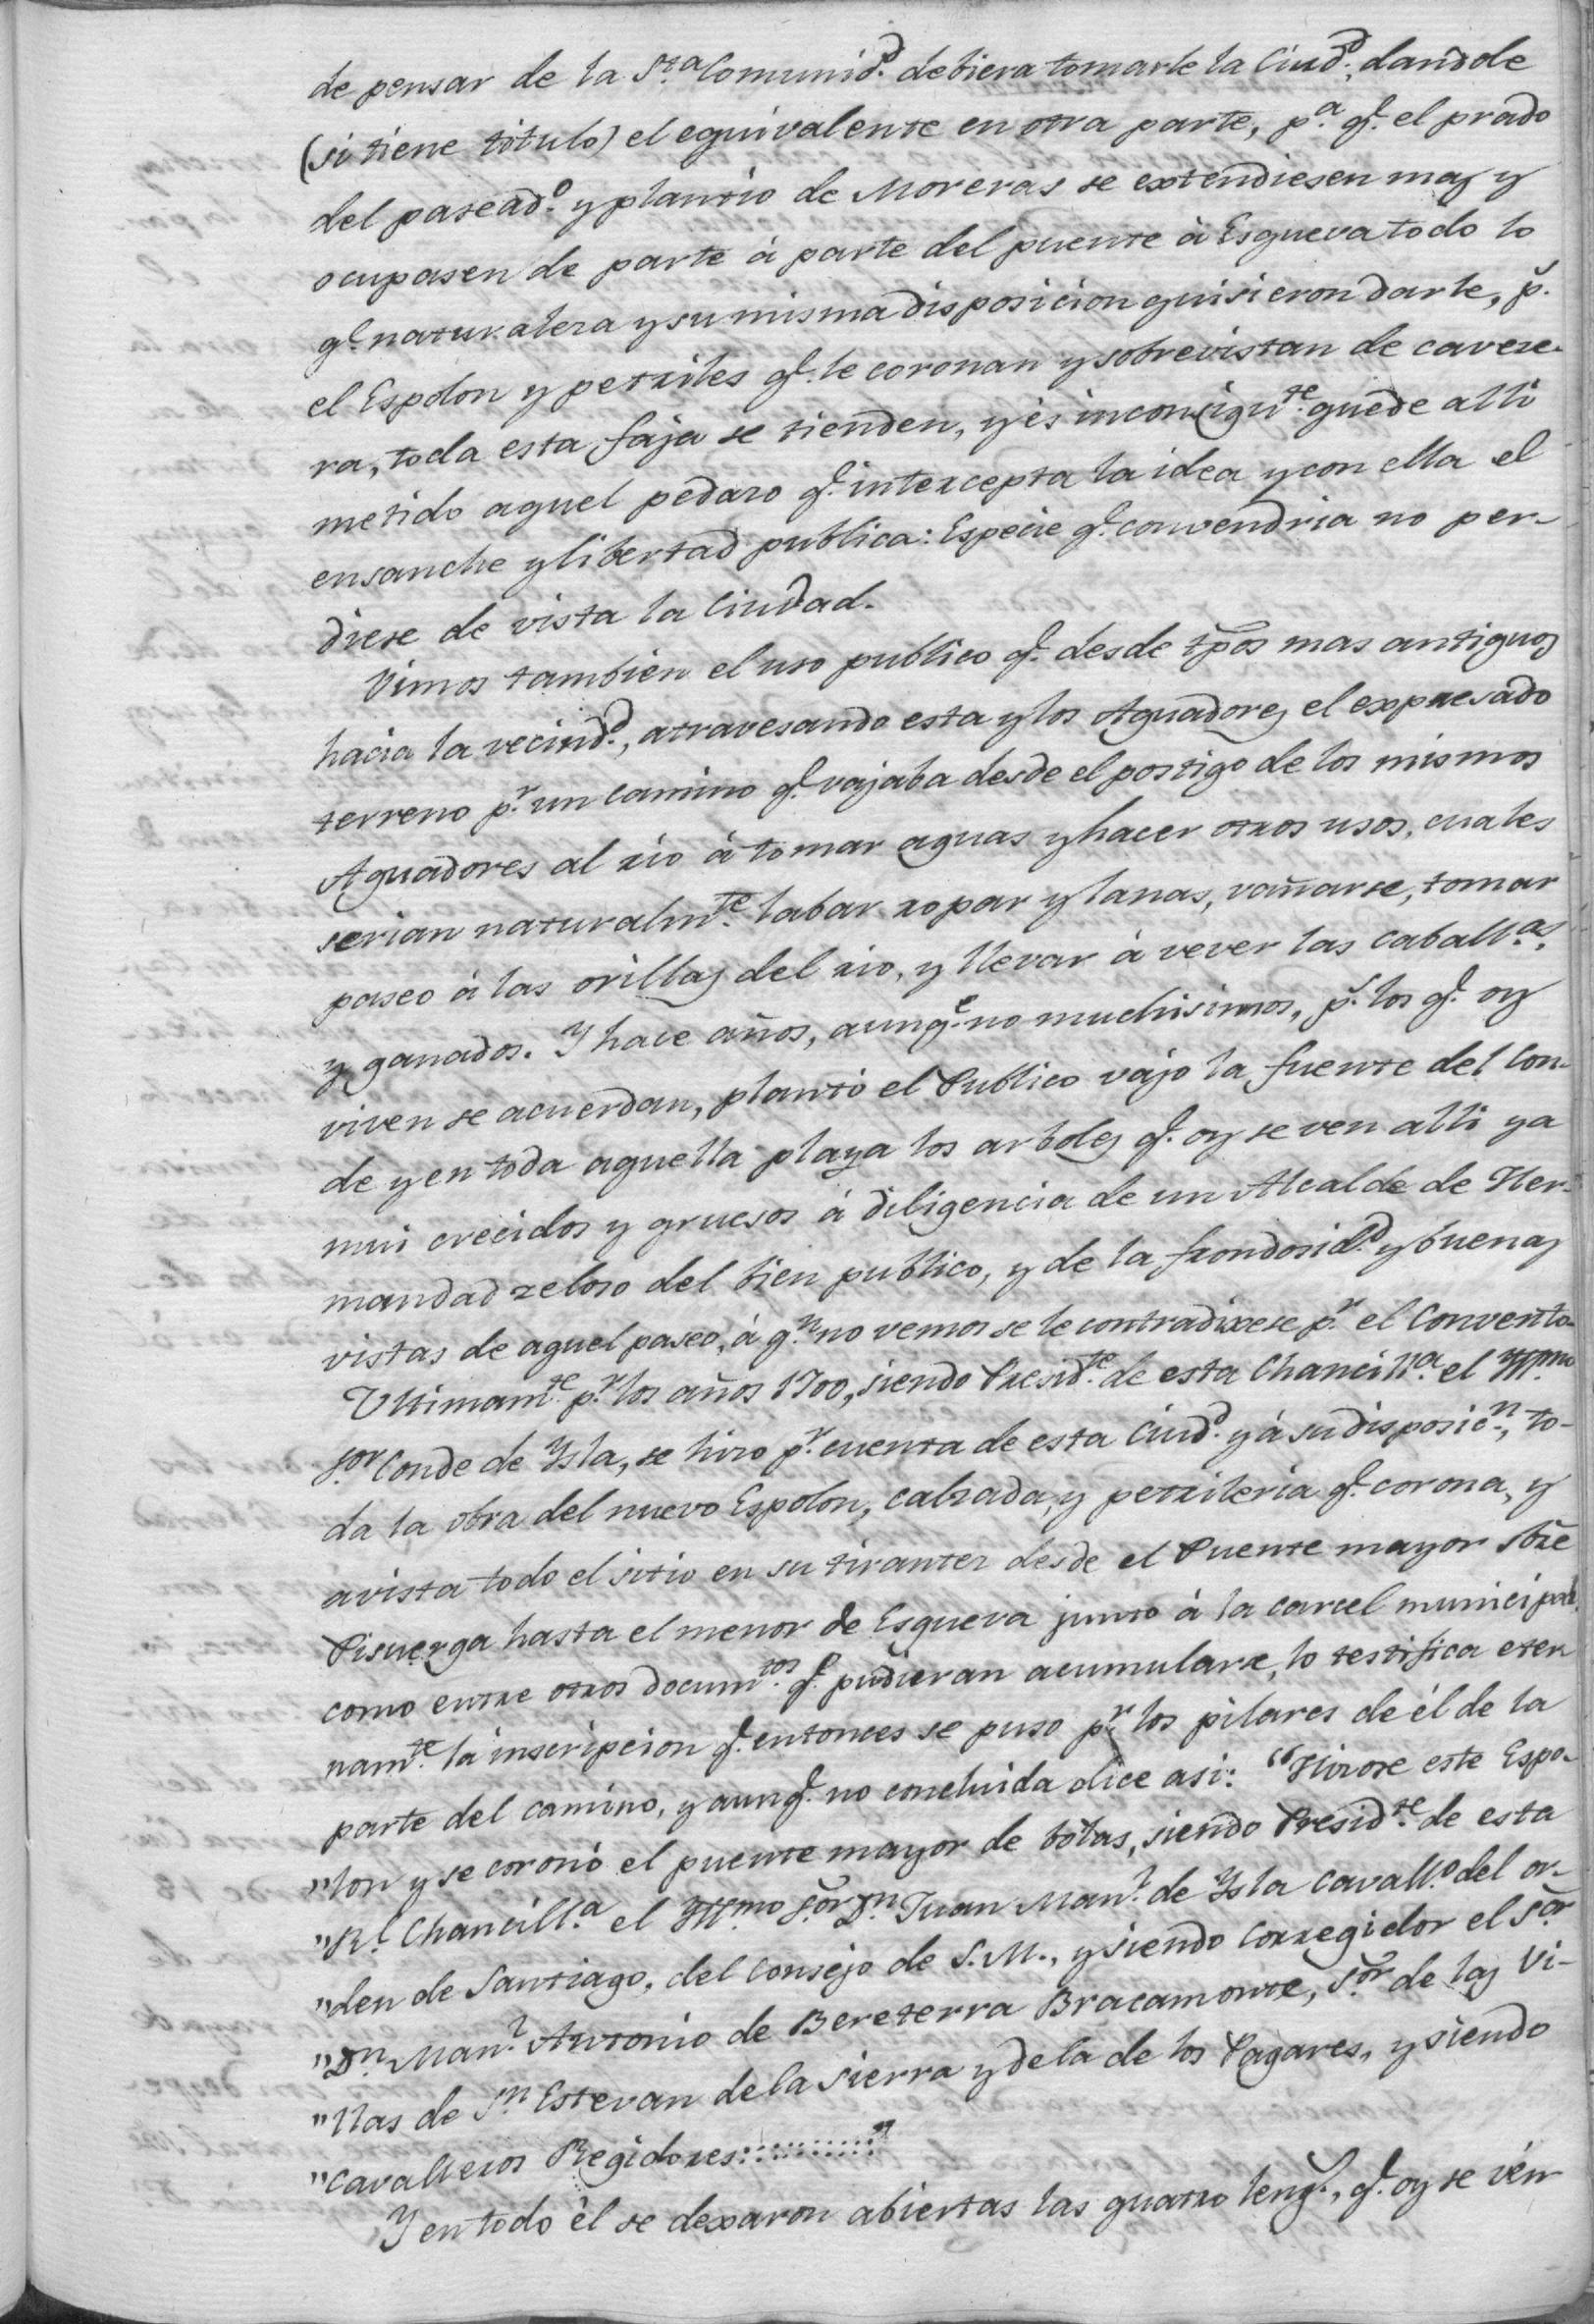 de pensar de la S.ta Comunid.d debiera tomarle la Ciud.d, dandole
(si tiene titulo) el equivalente en otra parte, p.a q.e el prado
del pasead.o y plantio de Moreras se extendiesen mas y
ocupasen de parte à parte del puente à Esgueva todo lo
q.e naturaleza y su misma disposicion quisieron darle, p.s
el Espolon y petriles q.e le coronan y sobrevistan de caveze-
ra, toda esta faja se tienden, y es inconsigu.te quede alli
metido aquel pedazo q.e intercepta la idea y con ella el
ensanche y libertad publica: Especie q.e convendria no per-
diese de vista la Ciudad.
Vimos tambien el uso publico q.e desde tpos mas antiguos
hacia la vecind.d, atravesando esta y los Aguadores el expresado
terreno p.r un camino q.e vajaba desde el postigo de los mismos
Aguadores al rio à tomar aguas y hacer otros usos, cuales
serian naturalm.te labar ropar y lanas, vañarse, tomar
paseo à las orillas del rio, y llevar à vever las caball.as
y ganados. Y hace años, aunq.e no muchisimos, p.s los q.e oy
viven se acuerdan, plantò el Publico vajo la fuente del Con-
de y en toda aquella playa los arboles q.e oy se ven alli ya
mui crecidos y gruesos à diligencia de un Alcalde de Her-
mandad zeloso del bien publico, y de la frondosid.d y buenas
vistas de aquel paseo, à q.n no vemos se le contradixese p.r el Convento.
Ultimam.te p.r los años 1700, siendo Presid.te de esta Chancill.a el Yll.mo
S.or Conde de Ysla, se hizo p.r cuenta de esta Ciud.d y à su disposic.n, to-
da la obra del nuevo Espolon, calzada, y petrileria q.e corona, y
avista todo el sitio en su tirantez desde el Puente mayor sbre
Pisuerga hasta el menor de Esgueva junto à la carcel municipal,
como entre otros docum.tos q.e pudieran acumularse, lo testifica eter
nam.te la inscripcion q.e entonces se puso p.r los pilares de él de la
parte del camino, y aunq.e no concluida dice asi: "Hizose este Espo-
"lon y se coronò el puente mayor de bolas, siendo Presid.te de esta
"R.l Chancill.a el Yll.mo S.or D.n Juan Man.l de Ysla Cavall.o del or-
"den de Santiago, del Consejo de S.M., y siendo Corregidor el S.or
"D.n Man.l Antonio de Bereterra Bracamonte, S.or de las Vi-
"llas de S.n Estevan de la Sierra y de la de los Pagares, y siendo
"Cavalleros Regidores::::::::::"
Y en todo èl se dexaron abiertas las quatro leng.s, q.e oy se vén